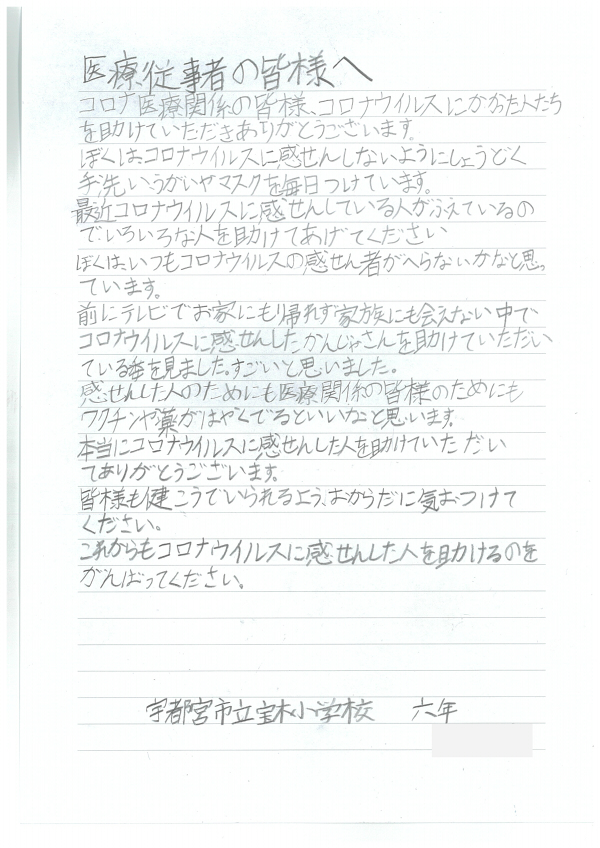 医療従事者の皆様へ
コロナ医療関係の皆様、コロナウイルスにかかった人たち
を助けていただきありがとうございます。
ぼくは、コロナウイルスに感せんしないようにしょうどく
手洗い、うがいやマスクを毎日つけています。
最近コロナウイルスに感せんしている人がふえているの
で、いろいろな人を助けてあげてください
ぼくは、いつもコロナウイルスの感せん者がへらないかなと思っ
ています。
前にテレビでお家にもり帰れず家族にも会えない中で
コロナウイルスに感せんしたかんじゃさんを助けていただい
ている姿を見ました。すごいと思いました。
感せんした人のためにも医療関係の皆様のためにも
ワクチンや薬がはやくでるといいなと思います。
本当にコロナウイルスに感せんした人を助けていただい
てありがとうございます。
皆様も健こうでいられるよう、おからだに気おつけて
ください。
これからもコロナウイルスに感せんした人を助けるのを
がんばってください。
宇都宮市立宝木小学校 六年